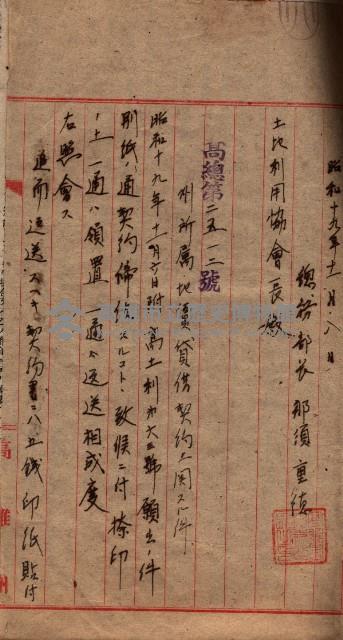 昭和十九年十一月八日
總務部長 那須重德
土地利用協會長殿
高總第二五一二號
州所属地賃貸借契約ニ関スル件
昭和十九年十一月六日附高土利第六三號願出ノ件
別紙ノ通契約締結スルコトニ致候ニ付捺印
ノ上一通ハ領置一通ハ返送相成度
右照會ス
追而返送スベキ契約書ニハ五錢印紙貼付
高雄州